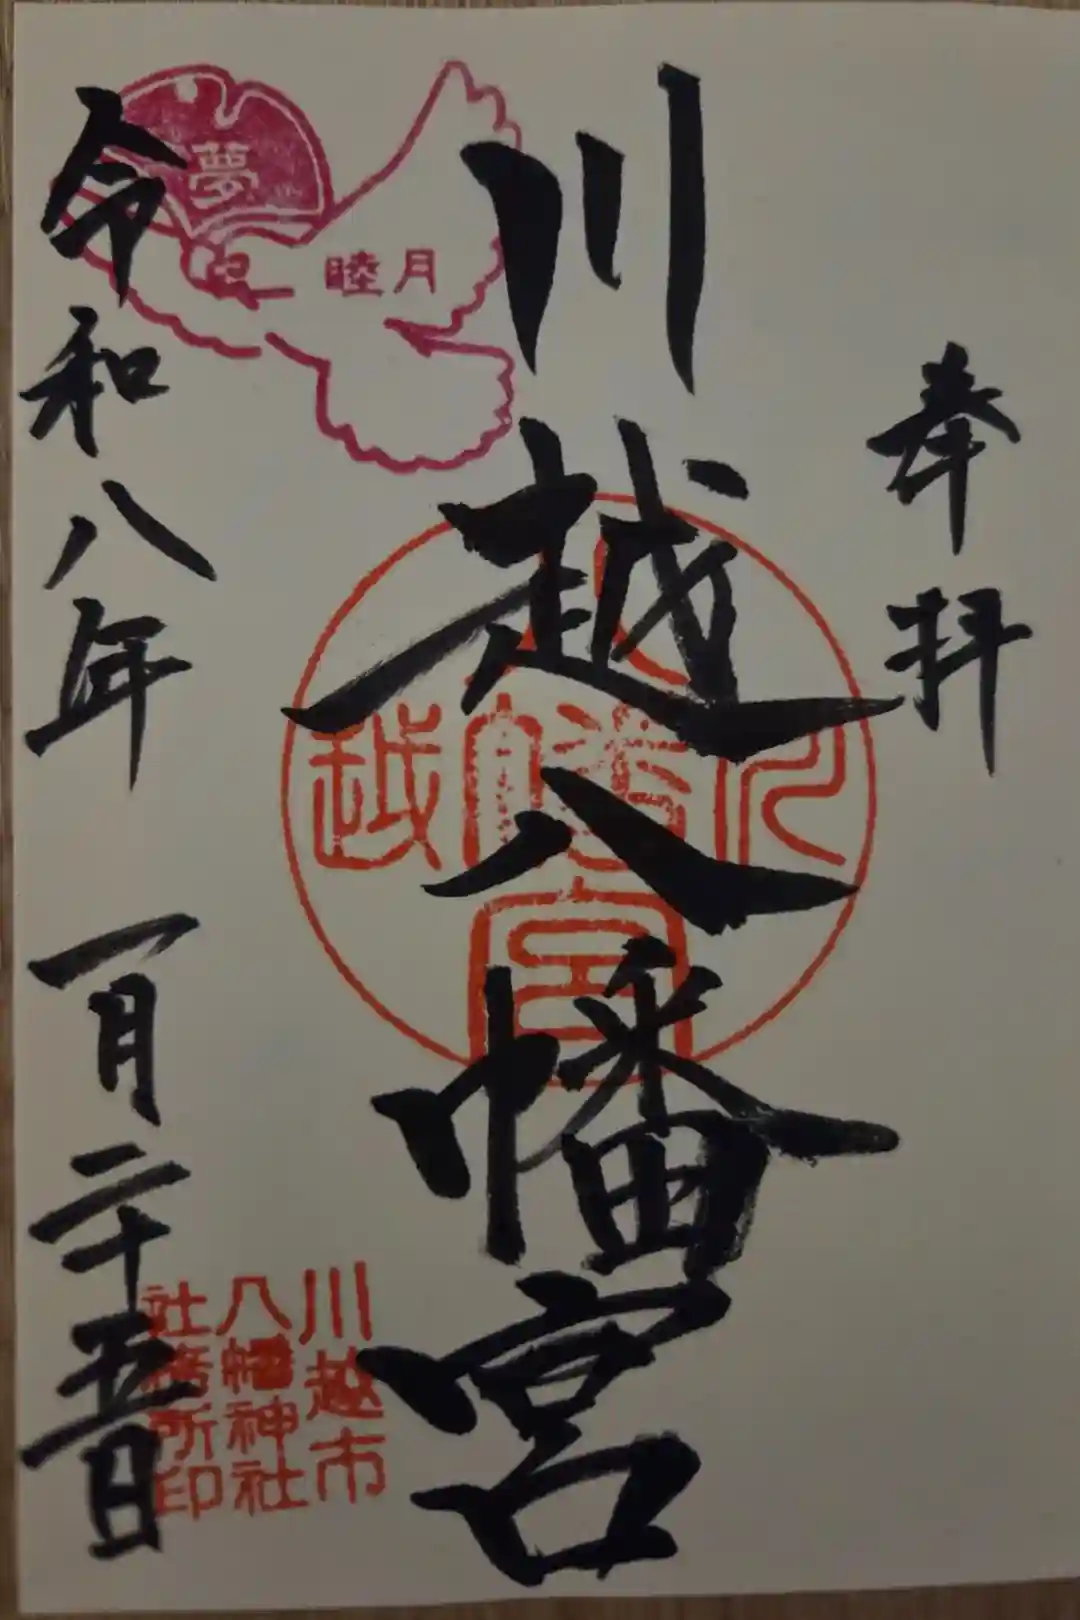 奉拝
川越八幡宮
令和八年 一月二十五日
夢
睦月
越 八
幡宮
川越市
八幡神社
社務所印